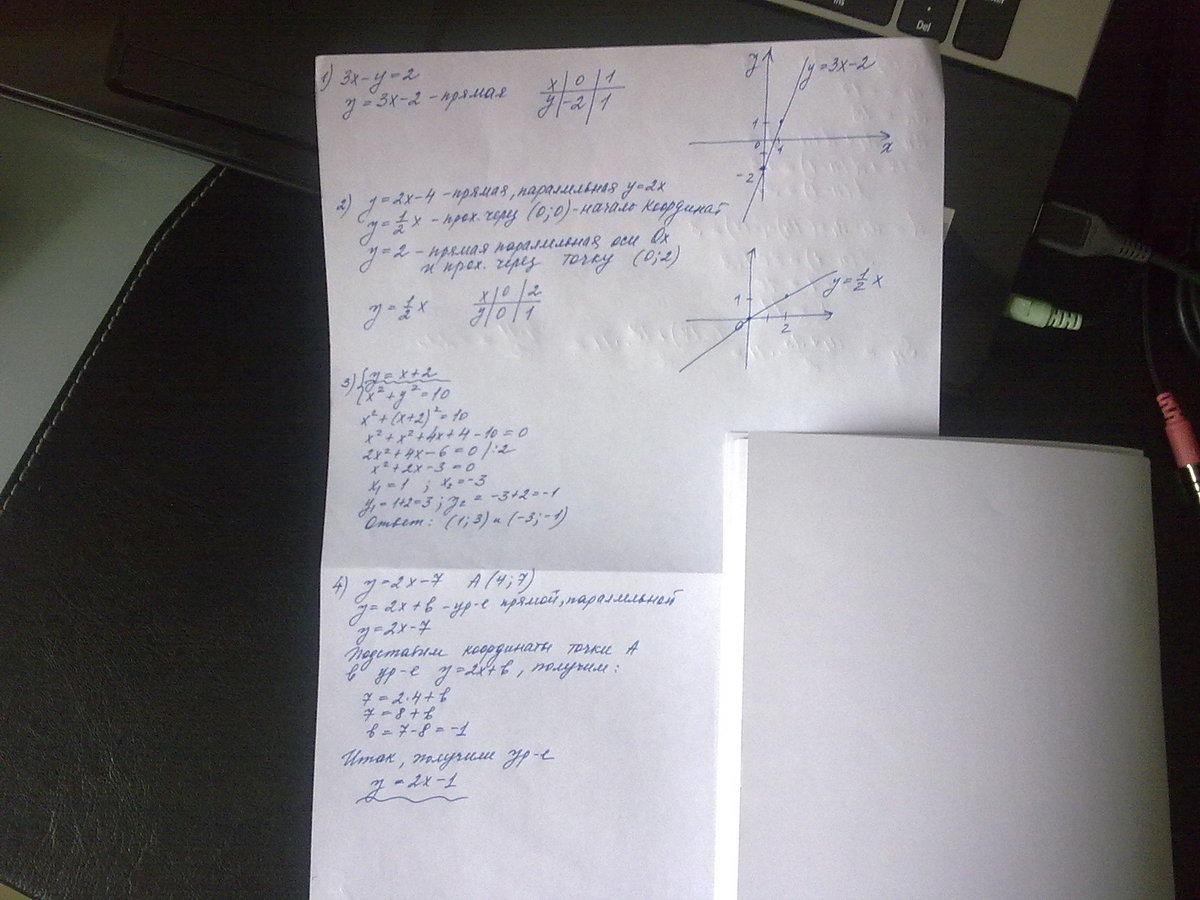 1) 3x-y=2
y=3x-2 - прямая
x | 0 | 1
y | -2 | 1
y
y=3x-2
1
0
1
x
-2
2) y=2x-4 - прямая, параллельная y=2x
y=1/2 x - прох. через (0;0) - начало координат
y=2 - прямая параллельная оси Ox
и прох. через точку (0;2)
y=1/2 x
x | 0 | 2
y | 0 | 1
y=1/2 x
1
0
2
3) { y=x+2
x²+y²=10
x²+(x+2)²=10
x²+x²+4x+4-10=0
2x²+4x-6=0 /:2
x²+2x-3=0
x₁=1 ; x₂=-3
y₁=1+2=3 ; y₂=-3+2=-1
Ответ: (1;3) и (-3;-1)
4) y=2x-7 A(4;7)
y=2x+b - ур-е прямой, параллельной
y=2x-7
Подставим координаты точки A
в ур-е y=2x+b, получим:
7=2·4+b
7=8+b
b=7-8=-1
Итак, получили ур-е
y=2x-1
Ins
Del